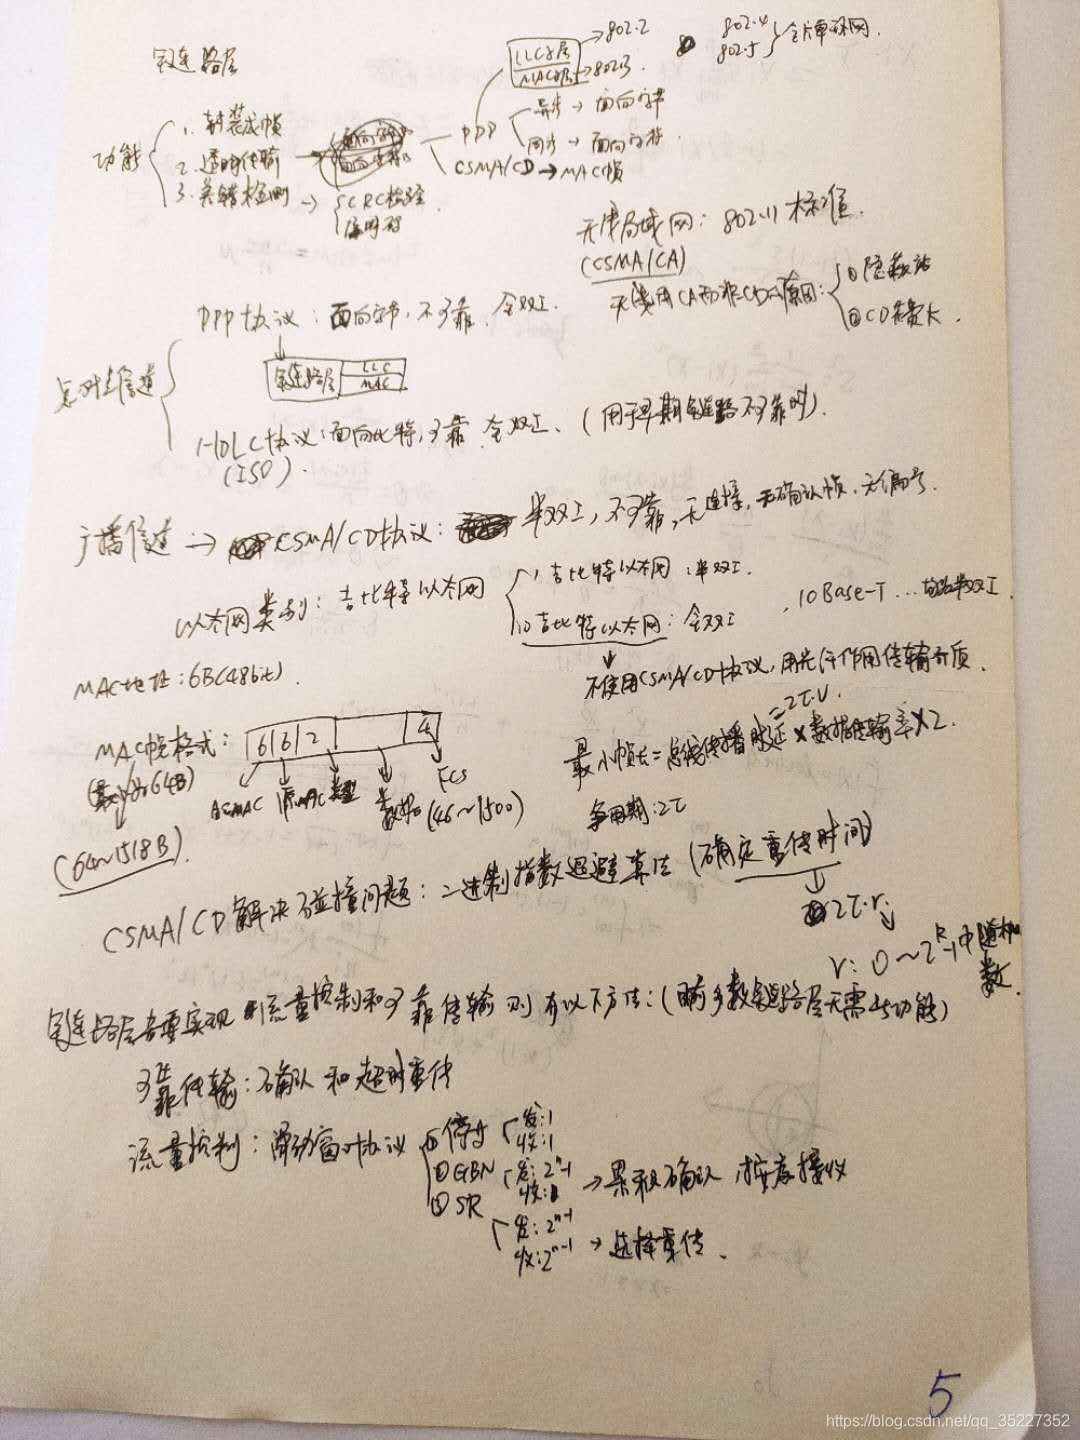 链路层
LLC子层 → 802.2
MAC子层 → 802.3
802.4
802.5 } 令牌环网.
功能
1. 封装成帧
2. 透明传输
3. 差错检测 → CRC检验
PPP
异步 → 面向字节
同步 → 面向
CSMA/CD → MAC帧
无线局域网: 802.11标准.
(CSMA/CA)
无线用CA而非CD的原因:
①隐蔽站
②CD花费大.
点对点信道
PPP协议: 面向字节, 不可靠. 全双工
链路层 LLC MAC
HDLC协议: 面向比特, 可靠. 全双工. (用于早期链路不可靠时).
(ISO).
广播信道 → CSMA/CD协议: 半双工, 不可靠, 无连接, 无确认帧, 无编号.
以太网类别: 吉比特以太网
1吉比特以太网: 半双工
10吉比特以太网: 全双工
, 10Base-T ... 半双工
不使用CSMA/CD协议, 用光纤作用传输介质.
MAC地址: 6B(48bit).
MAC帧格式: 6 6 2 4
(最小为64B)
(64~1518B).
目的MAC 源MAC 类型 数据 (46~1500) FCS
=2τ·V.
最小帧长=总线传播时延×数据传输率×2.
争用期: 2τ
CSMA/CD解决碰撞问题: 二进制指数退避算法 (确定重传时间)
2τ·r.
r: 0~2^k-1中随机数.
链路层若要实现流量控制和可靠传输则有以下方法: (目前多数链路层无需此功能)
可靠传输: 确认和超时重传
流量控制: 滑动窗口协议
停等 发: 1
收: 1
GBN 发: 2^n-1
收: 1 → 累积确认, 按序接收
SR 发: 2^n-1
收: 2^n-1 → 选择重传.
5
https://blog.csdn.net/qq_35227352